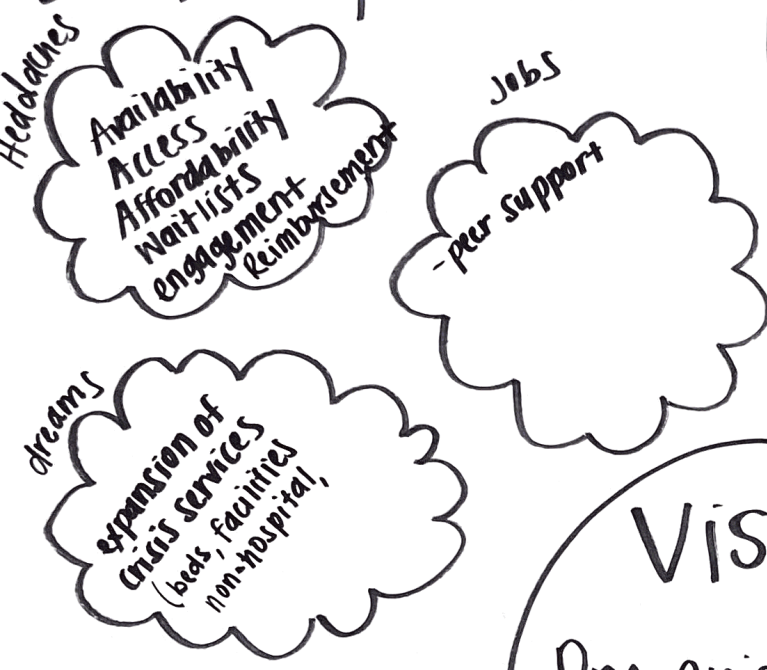 Heddaches
Availability
Access
Affordability
Waitlists
engagement
Reimbursement
jobs
-peer support
dreams
expansion of
crisis services
(beds, facilities
non-hospital,
Vis